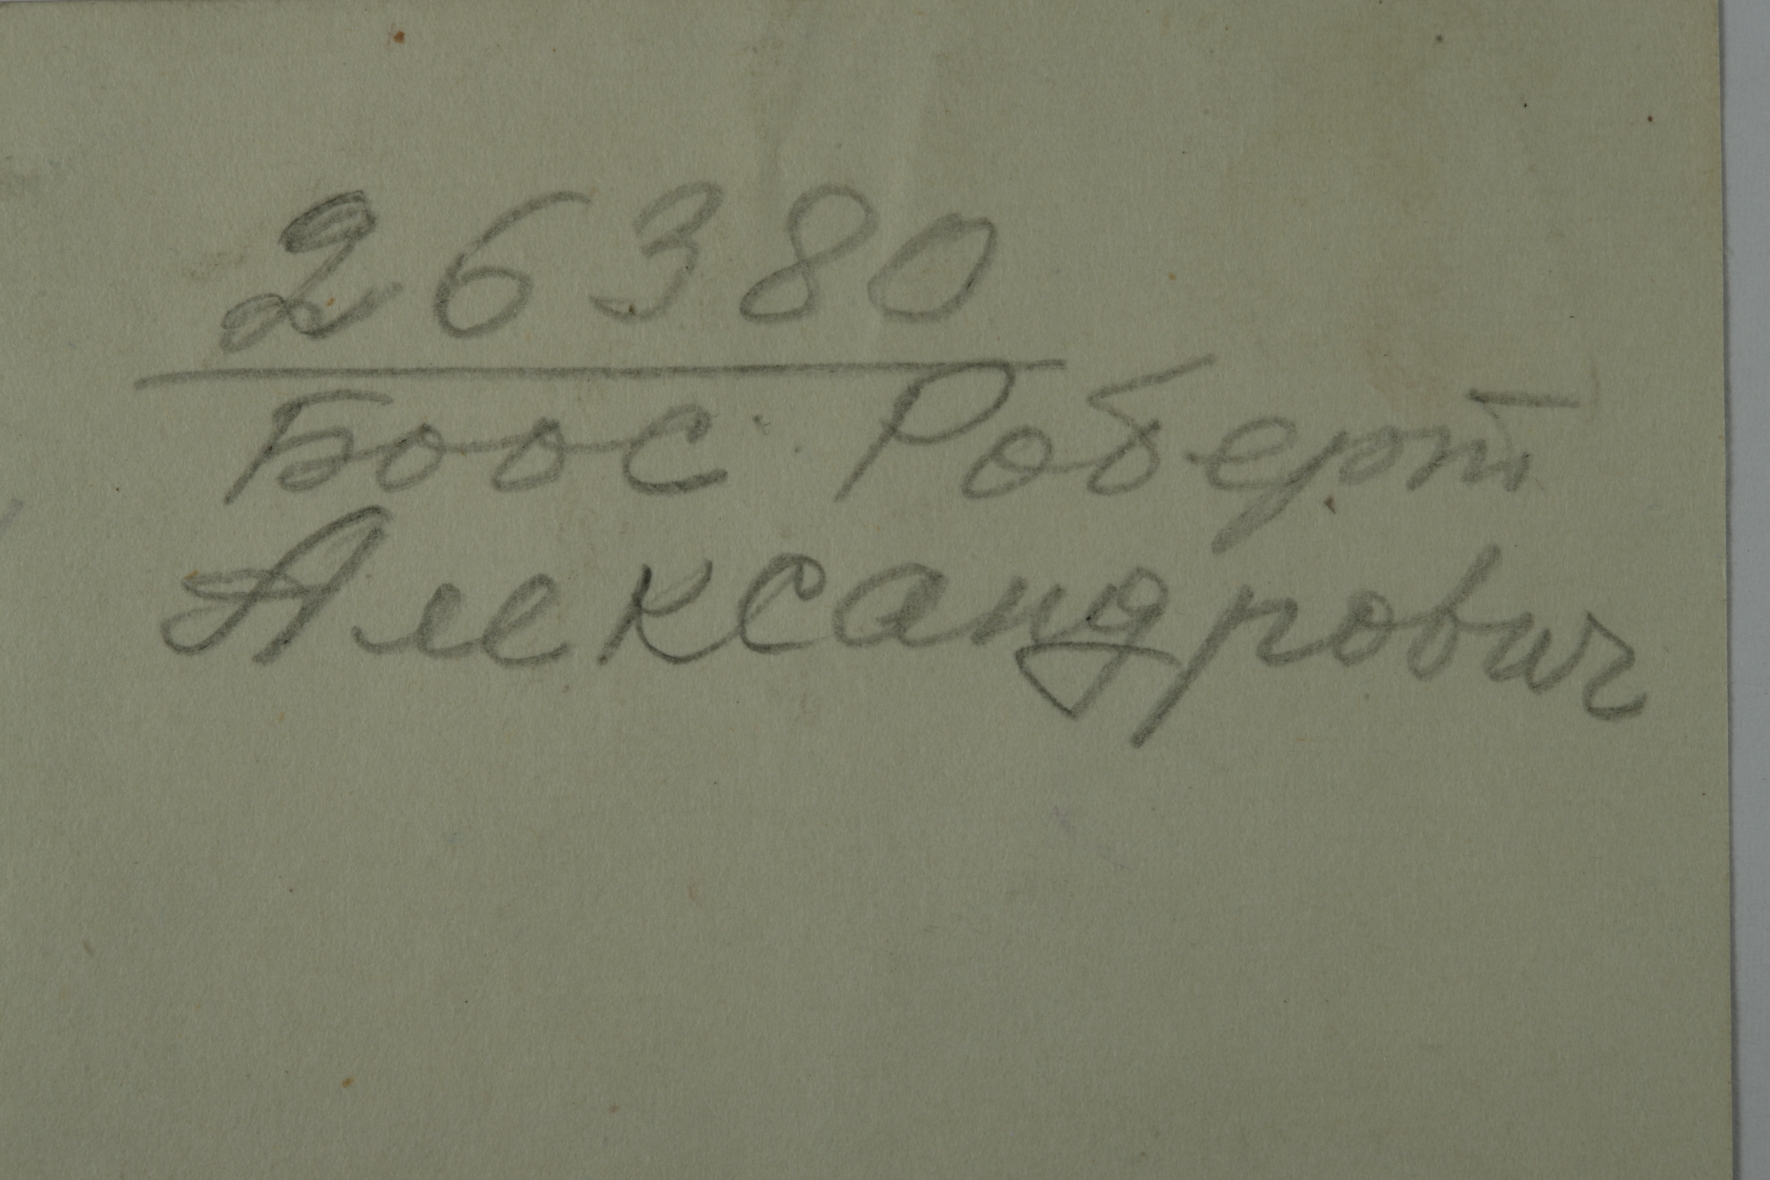 26380
Боос Роберт
Александрович